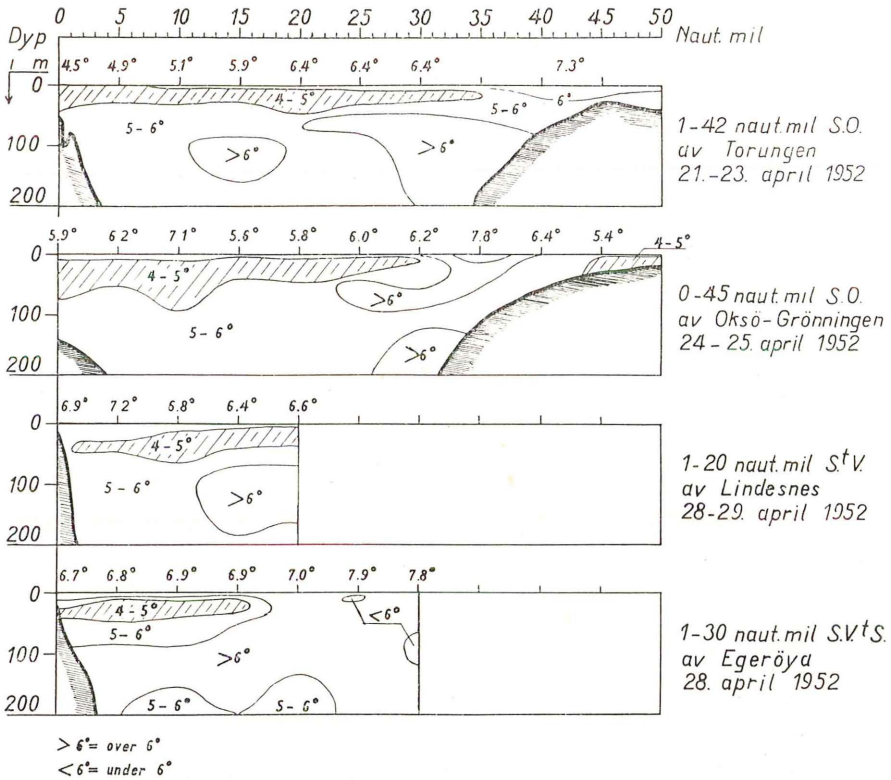 0 5 10 15 20 25 30 35 40 45 50
Dyp
i m
Naut. mil
4.5° 4.9° 5.1° 5.9° 6.4° 6.4° 6.4° 7.3°
0
100
200
4-5°
5-6°
>6°
>6°
5-6°
6°
1-42 naut. mil S.O.
av Torungen
21.-23. april 1952
5.9° 6.2° 7.1° 5.6° 5.8° 6.0° 6.2° 7.8° 6.4° 5.4°
4-5°
0
100
200
4-5°
5-6°
>6°
>6°
0-45 naut. mil S.O.
av Oksö-Grönningen
24-25. april 1952
6.9° 7.2° 6.8° 6.4° 6.6°
0
100
200
4-5°
5-6°
>6°
1-20 naut. mil S.tV.
av Lindesnes
28-29. april 1952
6.7° 6.8° 6.9° 6.9° 7.0° 7.9° 7.8°
0
100
200
4-5°
5-6°
>6°
<6°
5-6°
5-6°
1-30 naut. mil S.V.tS.
av Egeröya
28. april 1952
>6°= over 6°
<6°= under 6°